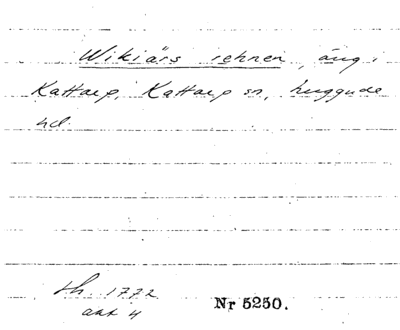 Wikiärs rehnen, äng i
Kattarp, Kattarp sn, Luggude
hd.
sh. 1772
akt 4
Nr 5250.